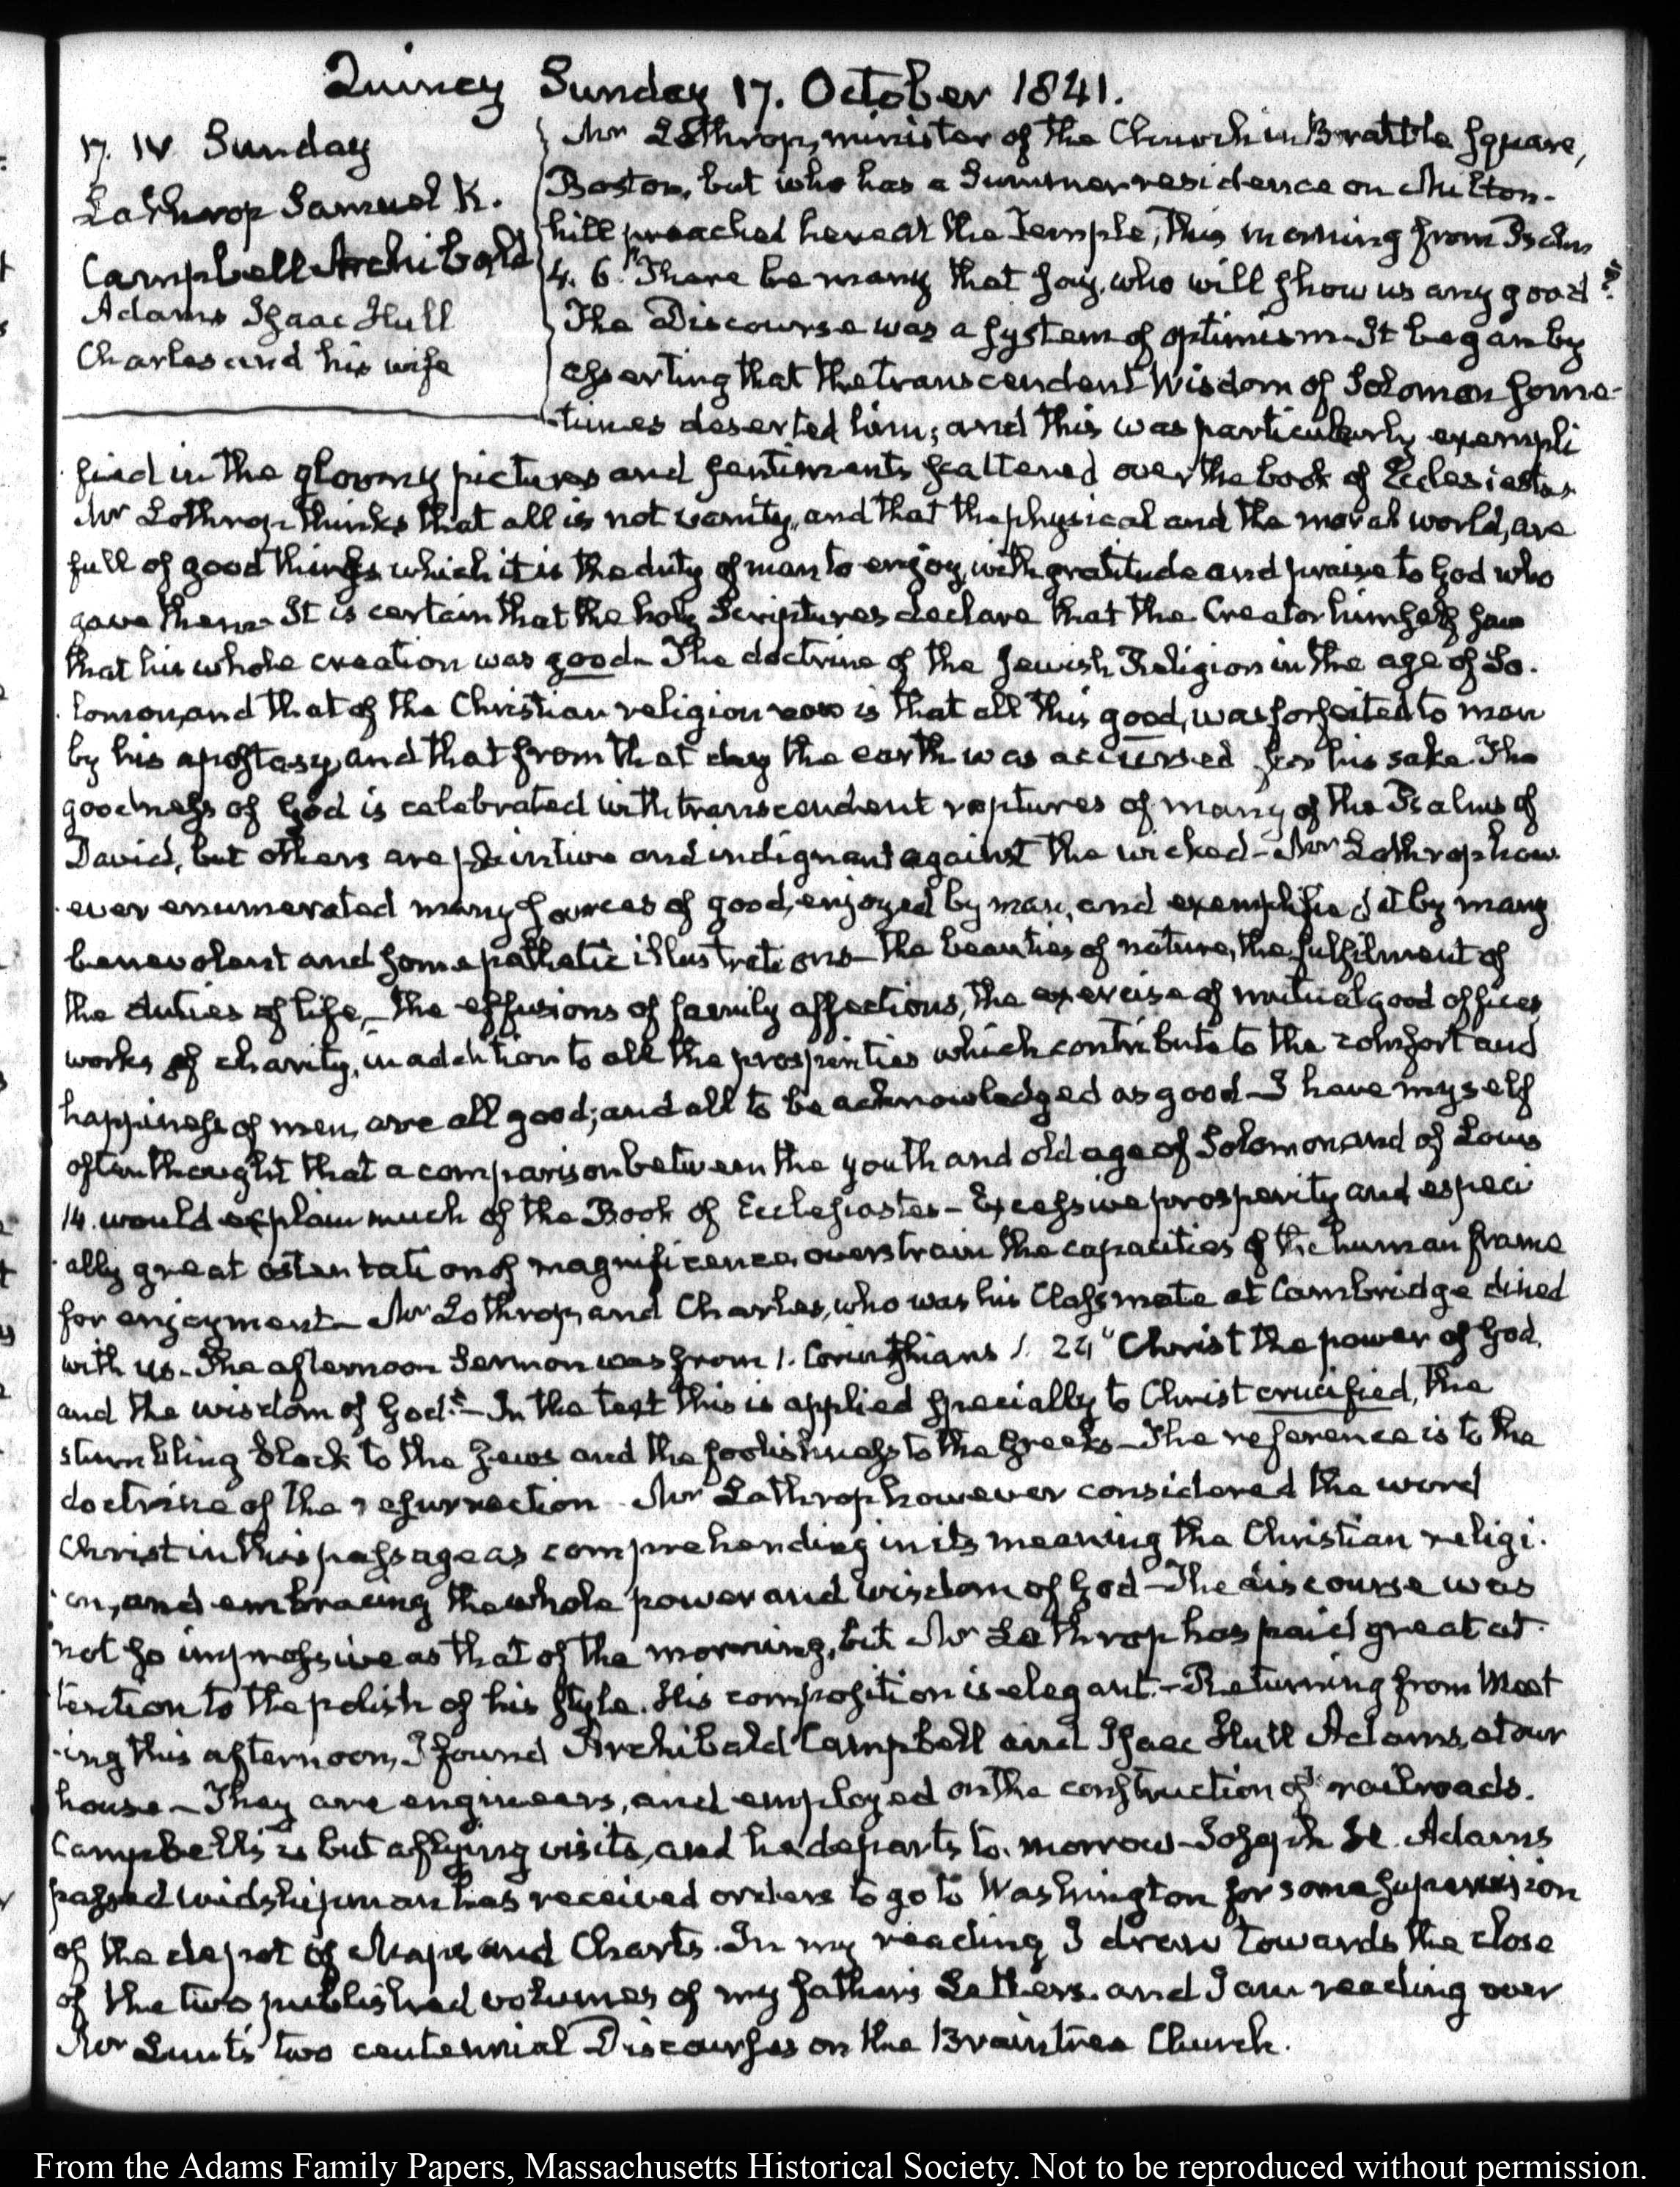 Quincy Sunday 17. October 1841.
17. IV Sunday
Lothrop Samuel K.
Campbell Archibald
Adams Isaac Hull
Charles and his wife
Mr Lothrop, minister of the Church in Brattle Square,
Boston, but who has a Summer residence on Milton-
hill preached here at the Temple, this morning from Psalm
4. 6. "There be many that say, who will show us any good?"
The Discourse was a system of optimism- It began by
asserting that the transcendent Wisdom of Solomon some-
times deserted him; and this was particularly exempli
fied in the gloomy pictures and sentiments scattered over the book of Ecclesiastes
Mr Lothrop thinks that all is not vanity, and that the physical and the moral world, are
full of good things which it is the duty of man to enjoy, with gratitude and praise to God who
gave them- It is certain that the holy Scriptures declare that the Creator himself saw
that his whole creation was good- The doctrine of the Jewish Religion in the age of So-
lomon, and that of the Christian religion now is that all this good, was forfeited to man
by his apostasy, and that from that day the earth was accursed for his sake. The
goodness of God is celebrated with transcendent raptures of many of the Psalms of
David, but others are plaintive and indignant against the wicked- Mr Lothrop how
ever enumerated many sources of good, enjoyed by man, and exemplified it by many
benevolent and some pathetic illustrations- the beauties of nature, the fulfilment of
the duties of life,- the effusions of family affections, the exercise of mutual good offices
works of charity, in addition to all the prosperities which contribute to the comfort and
happiness of men, are all good; and all to be acknowledged as good- I have myself
often thought that a comparison between the youth and old age of Solomon and of Louis
14. would explain much of the Book of Ecclesiastes- Excessive prosperity and especi
ally great ostentation of magnificence overstrain the capacities of the human frame
for enjoyment- Mr Lothrop, and Charles, who was his Classmate at Cambridge dined
with us- The afternoon Sermon was from 1. Corinthians 1. 24 "Christ the power of God,
and the wisdom of God."- In the text this is applied specially to Christ crucified, the
stumbling block to the Jews and the foolishness to the Greeks- The reference is to the
doctrine of the resurrection- Mr Lothrop however considered the word
Christ in this passage as comprehending in its meaning the Christian religi-
on, and embracing the whole power and wisdom of God- The discourse was
not so impressive as that of the morning, but Mr Lothrop has paid great at-
tention to the polish of his style. His composition is elegant.- Returning from Meet
ing this afternoon, I found Archibald Campbell and Isaac Hull Adams, at our
house- They are engineers, and employed on the construction of railroads.
Campbell's is but a flying visit, and he departs to-morrow- Joseph H. Adams
passed midshipman has received orders to go to Washington for some supervision
of the depot of Maps and Charts. In my reading I draw towards the close
of the two published volumes of my father's Letters. and I am reading over
Mr Lunt's two centennial Discourses on the Braintree Church.
From the Adams Family Papers, Massachusetts Historical Society. Not to be reproduced without permission.